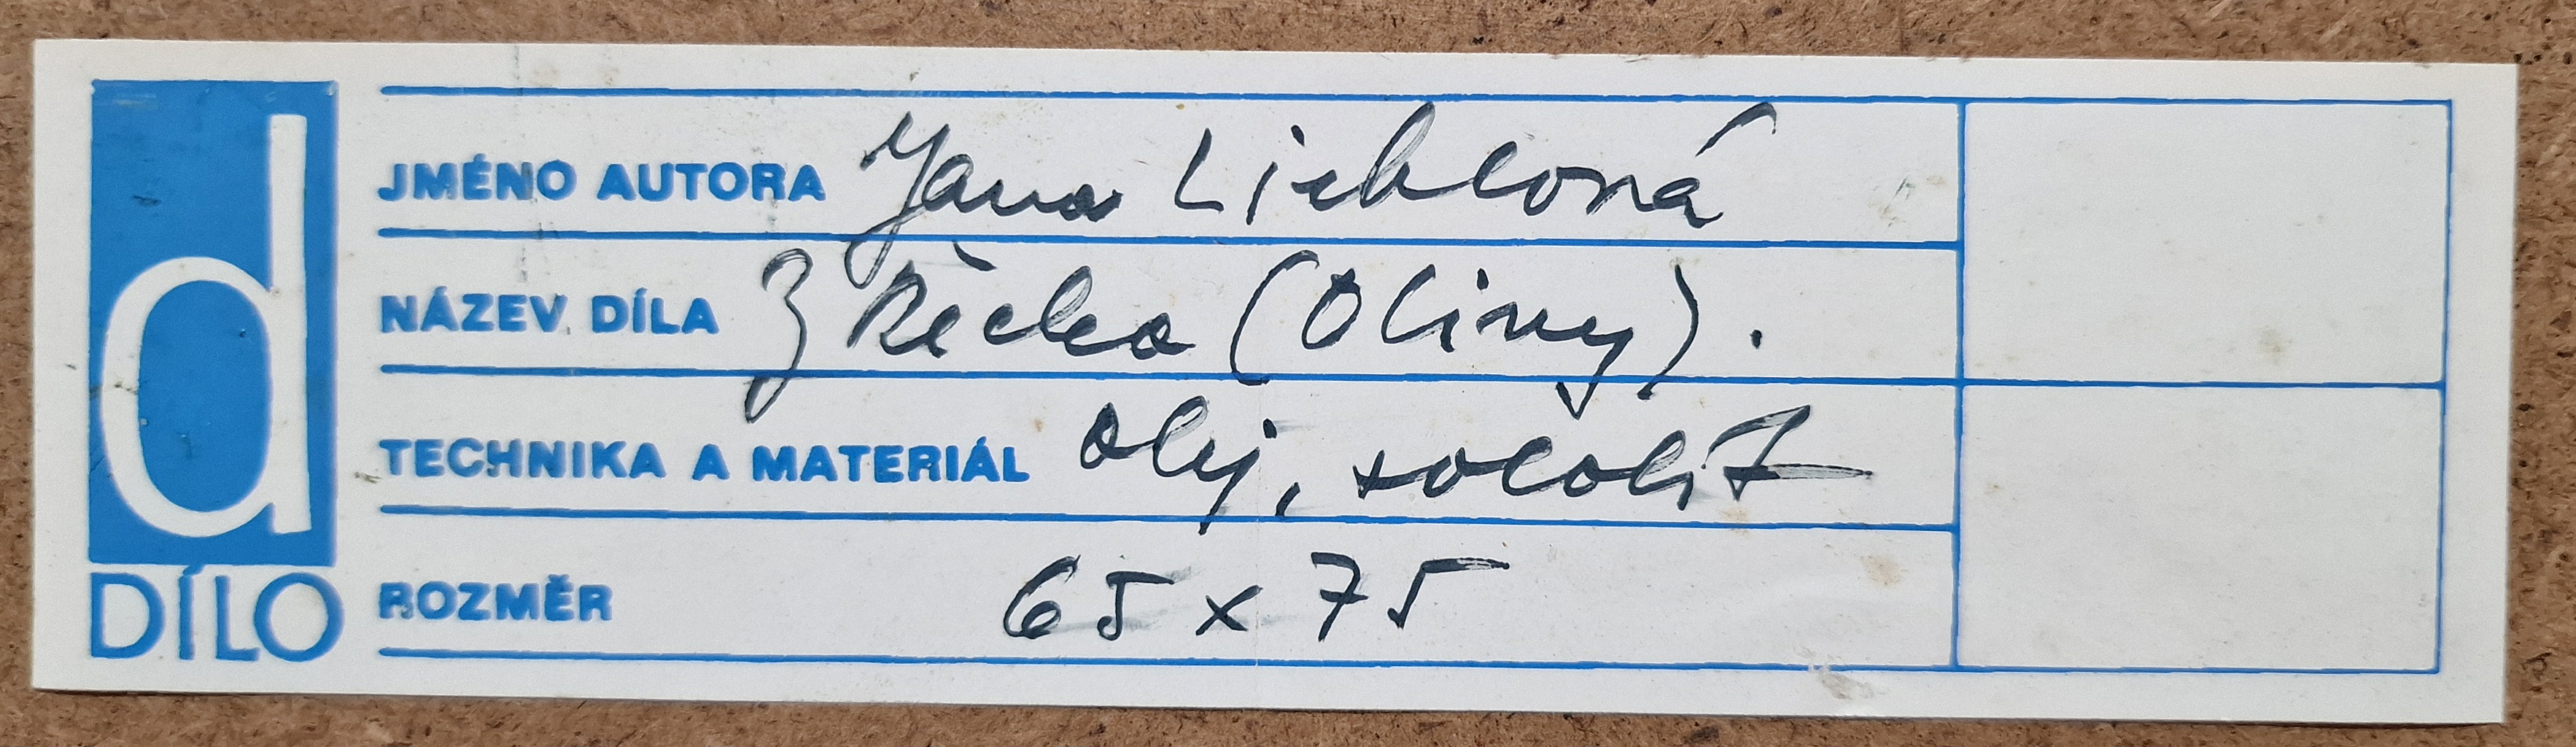 d
DÍLO
JMÉNO AUTORA Jana
NÁZEV DÍLA Z Řecka (Olivy).
TECHNIKA A MATERIÁL olej, sololit
ROZMĚR 65 x 75